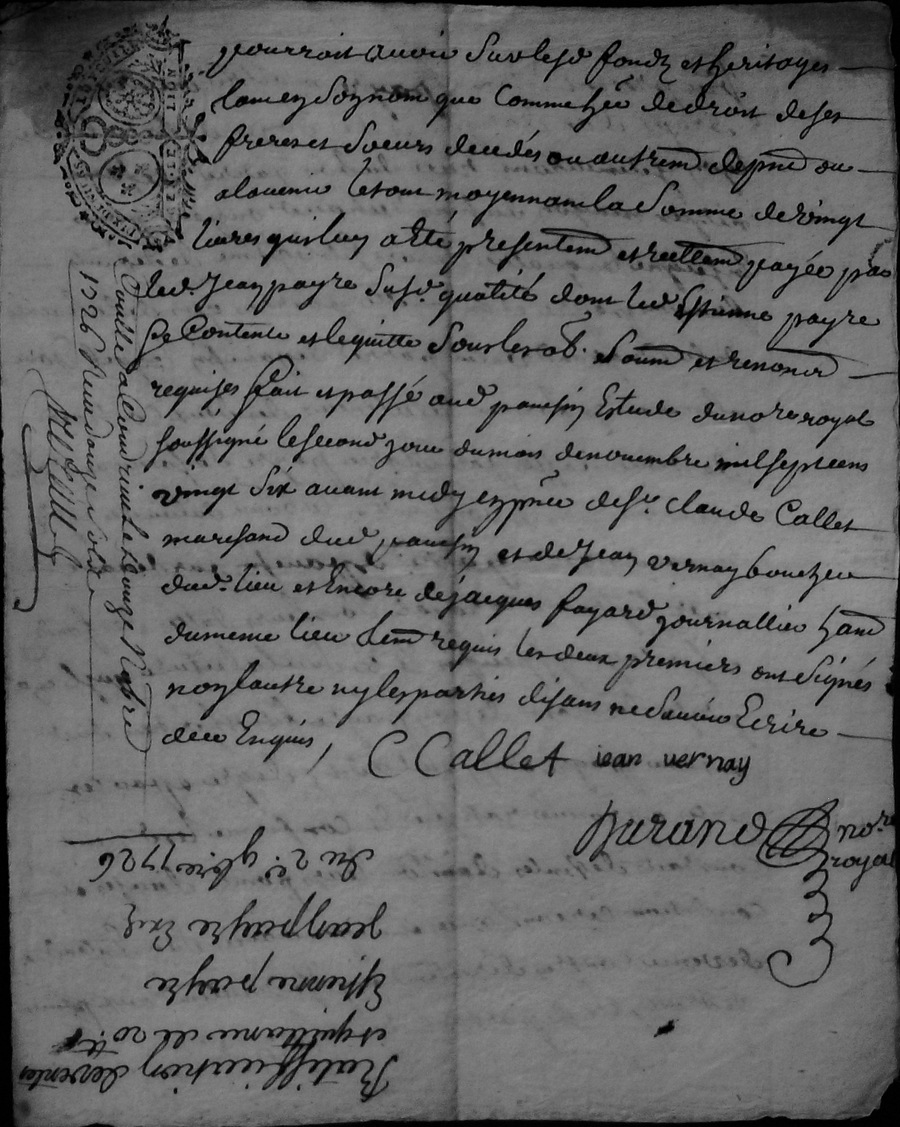 pourroit avoir sur lesd fondz et heritages
tant en son nom que comme heē de droit de ses
freres et soeurs decedés ou autremt depnt ou
alavenir le tout moyennant la somme de vingt
livres qui luy a été presentemt et reellemt payée par
led. Jean payre susd. qualité dont led Estienne payre
se contente et le quitte sous les ob. soumon et renonon
requises fait et passé aud pouzin Estude du nore royal
soussigné le second jour du mois de novembre mil sept cens
vingt six avant midy en pnce de sr. Claude Callet
marchand dud pouzin et de Jean vernay boucher
dud. lieu et Encore de jacques fayard journallier hant
du meme lieu temt requis les deux premiers ont signés
non l'autre ny les parties disans ne savoir Ecrire
de ce Enquis /
CCallet jean vernay
Durand nore
royal
Controllé a le unze 9bre
1726 Reçu douze sols
Ratiffication de ventes
et quittance de 20 ll
Estienne payre
Jean payre
du 2e. 9bre 1726